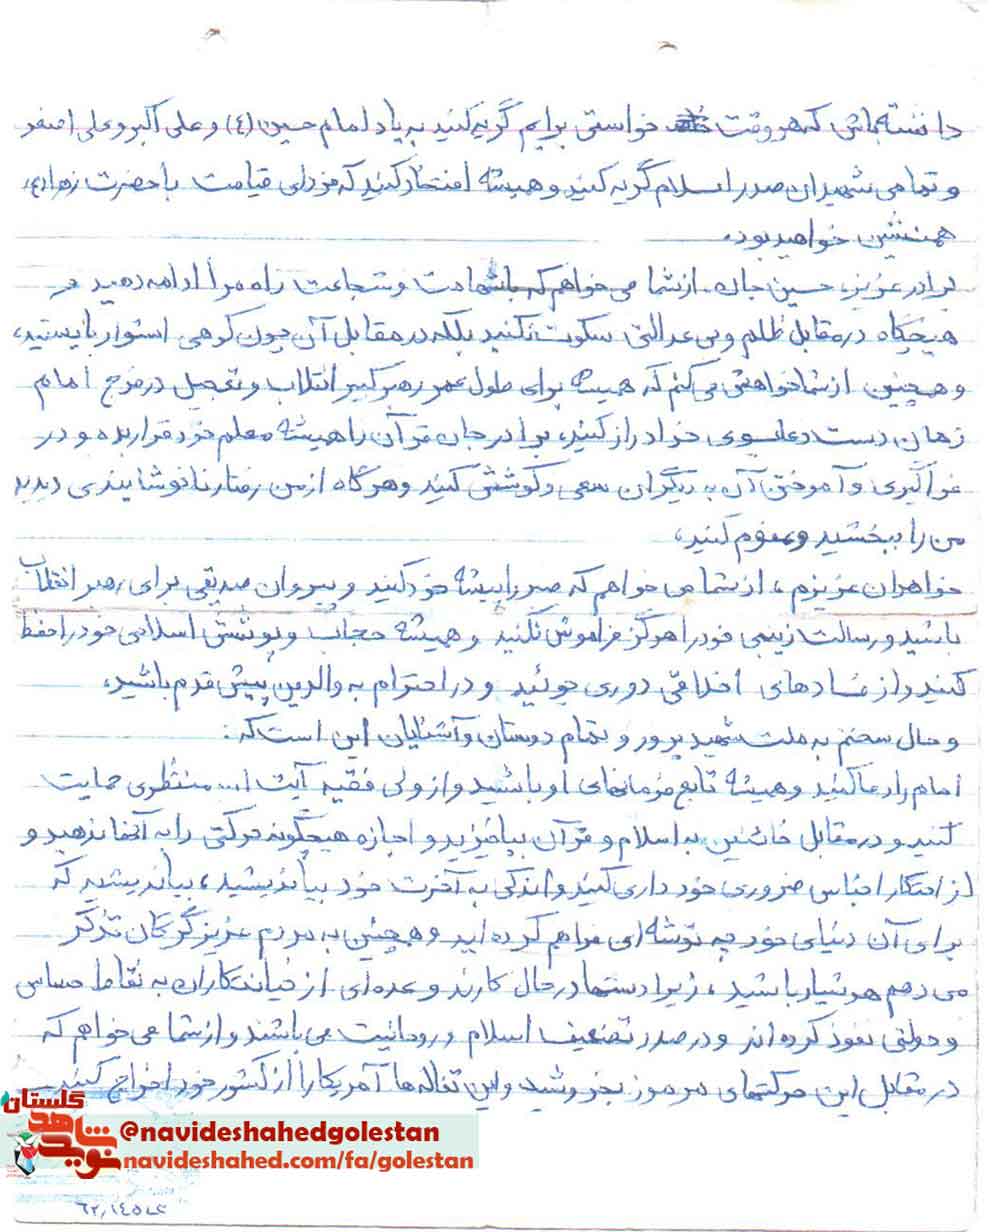 دانسته باش که هر وقت خواستی برایم گریه کنید به یاد امام حسین (ع) و علی اکبر و علی اصغر
و تمامی شهیدان صدر اسلام گریه کنید و همیشه افتخار کنید که فردای قیامت با حضرت زهرا (ع)
همنشین خواهید بود.
برادر عزیز، حسین جان، از شما می خواهم که با شهامت و شجاعت راه مرا ادامه دهید و
هیچگاه در مقابل ظلم و بی عدالتی سکوت نکنید بلکه در مقابل آن چون کوهی استوار بایستید،
و همچنین از شما خواهش می کنم که همیشه برای طول عمر رهبر کبیر انقلاب و تعجیل در فرج امام
زمان دست دعا بسوی خدا دراز کنید، برادر جان قرآن را همیشه معلم خود قرار بده و در
فراگیری و آموختن آن به دیگران سعی و کوشش کنید و هر گاه از من رفتار ناخوشایندی دیدید
من را ببخشید و عفوم کنید،
خواهران عزیزم، از شما می خواهم که صبر را پیشه خود کنید و پیروان صدیقی برای رهبر انقلاب
باشید و رسالت زینبی خود را هرگز فراموش نکنید و همیشه حجاب و پوشش اسلامی خود را حفظ
کنید و از فسادهای اخلاقی دوری جوئید و در احترام به والدین پیش قدم باشید.
و حال سخنم به ملت شهید پرور و تمام دوستان و آشنایان این است که:
امام را دعا کنید و همیشه تابع فرمانهای او باشید و از ولی فقیه آیت ا... منتظری حمایت
کنید و در مقابل خائنین به اسلام و قرآن بپاخیزید و اجازه هیچگونه حرکتی را به آنها ندهید و
از احتکار اجناس ضروری خودداری کنید و اندکی به آخرت خود بیاندیشید، بیاندیشید که
برای آن دنیای خود چه توشه ای فراهم کرده اید و همچنین به مردم عزیز گرگان تذکر
می دهم هوشیار باشید، زیرا دستها در حال کارند و عده ای از خیانتکاران به نقاط حساس
دولتی نفوذ کرده اند و در صدد تضعیف اسلام و روحانیت می باشند و از شما می خواهم که
در مقابل این حرکتهای مرموز بخروشید و این تفاله ها آمریکا را از کشور خود اخراج کنید
گلستان
نوید شاهد
@navideshahedgolestan
navideshahed.com/fa/golestan